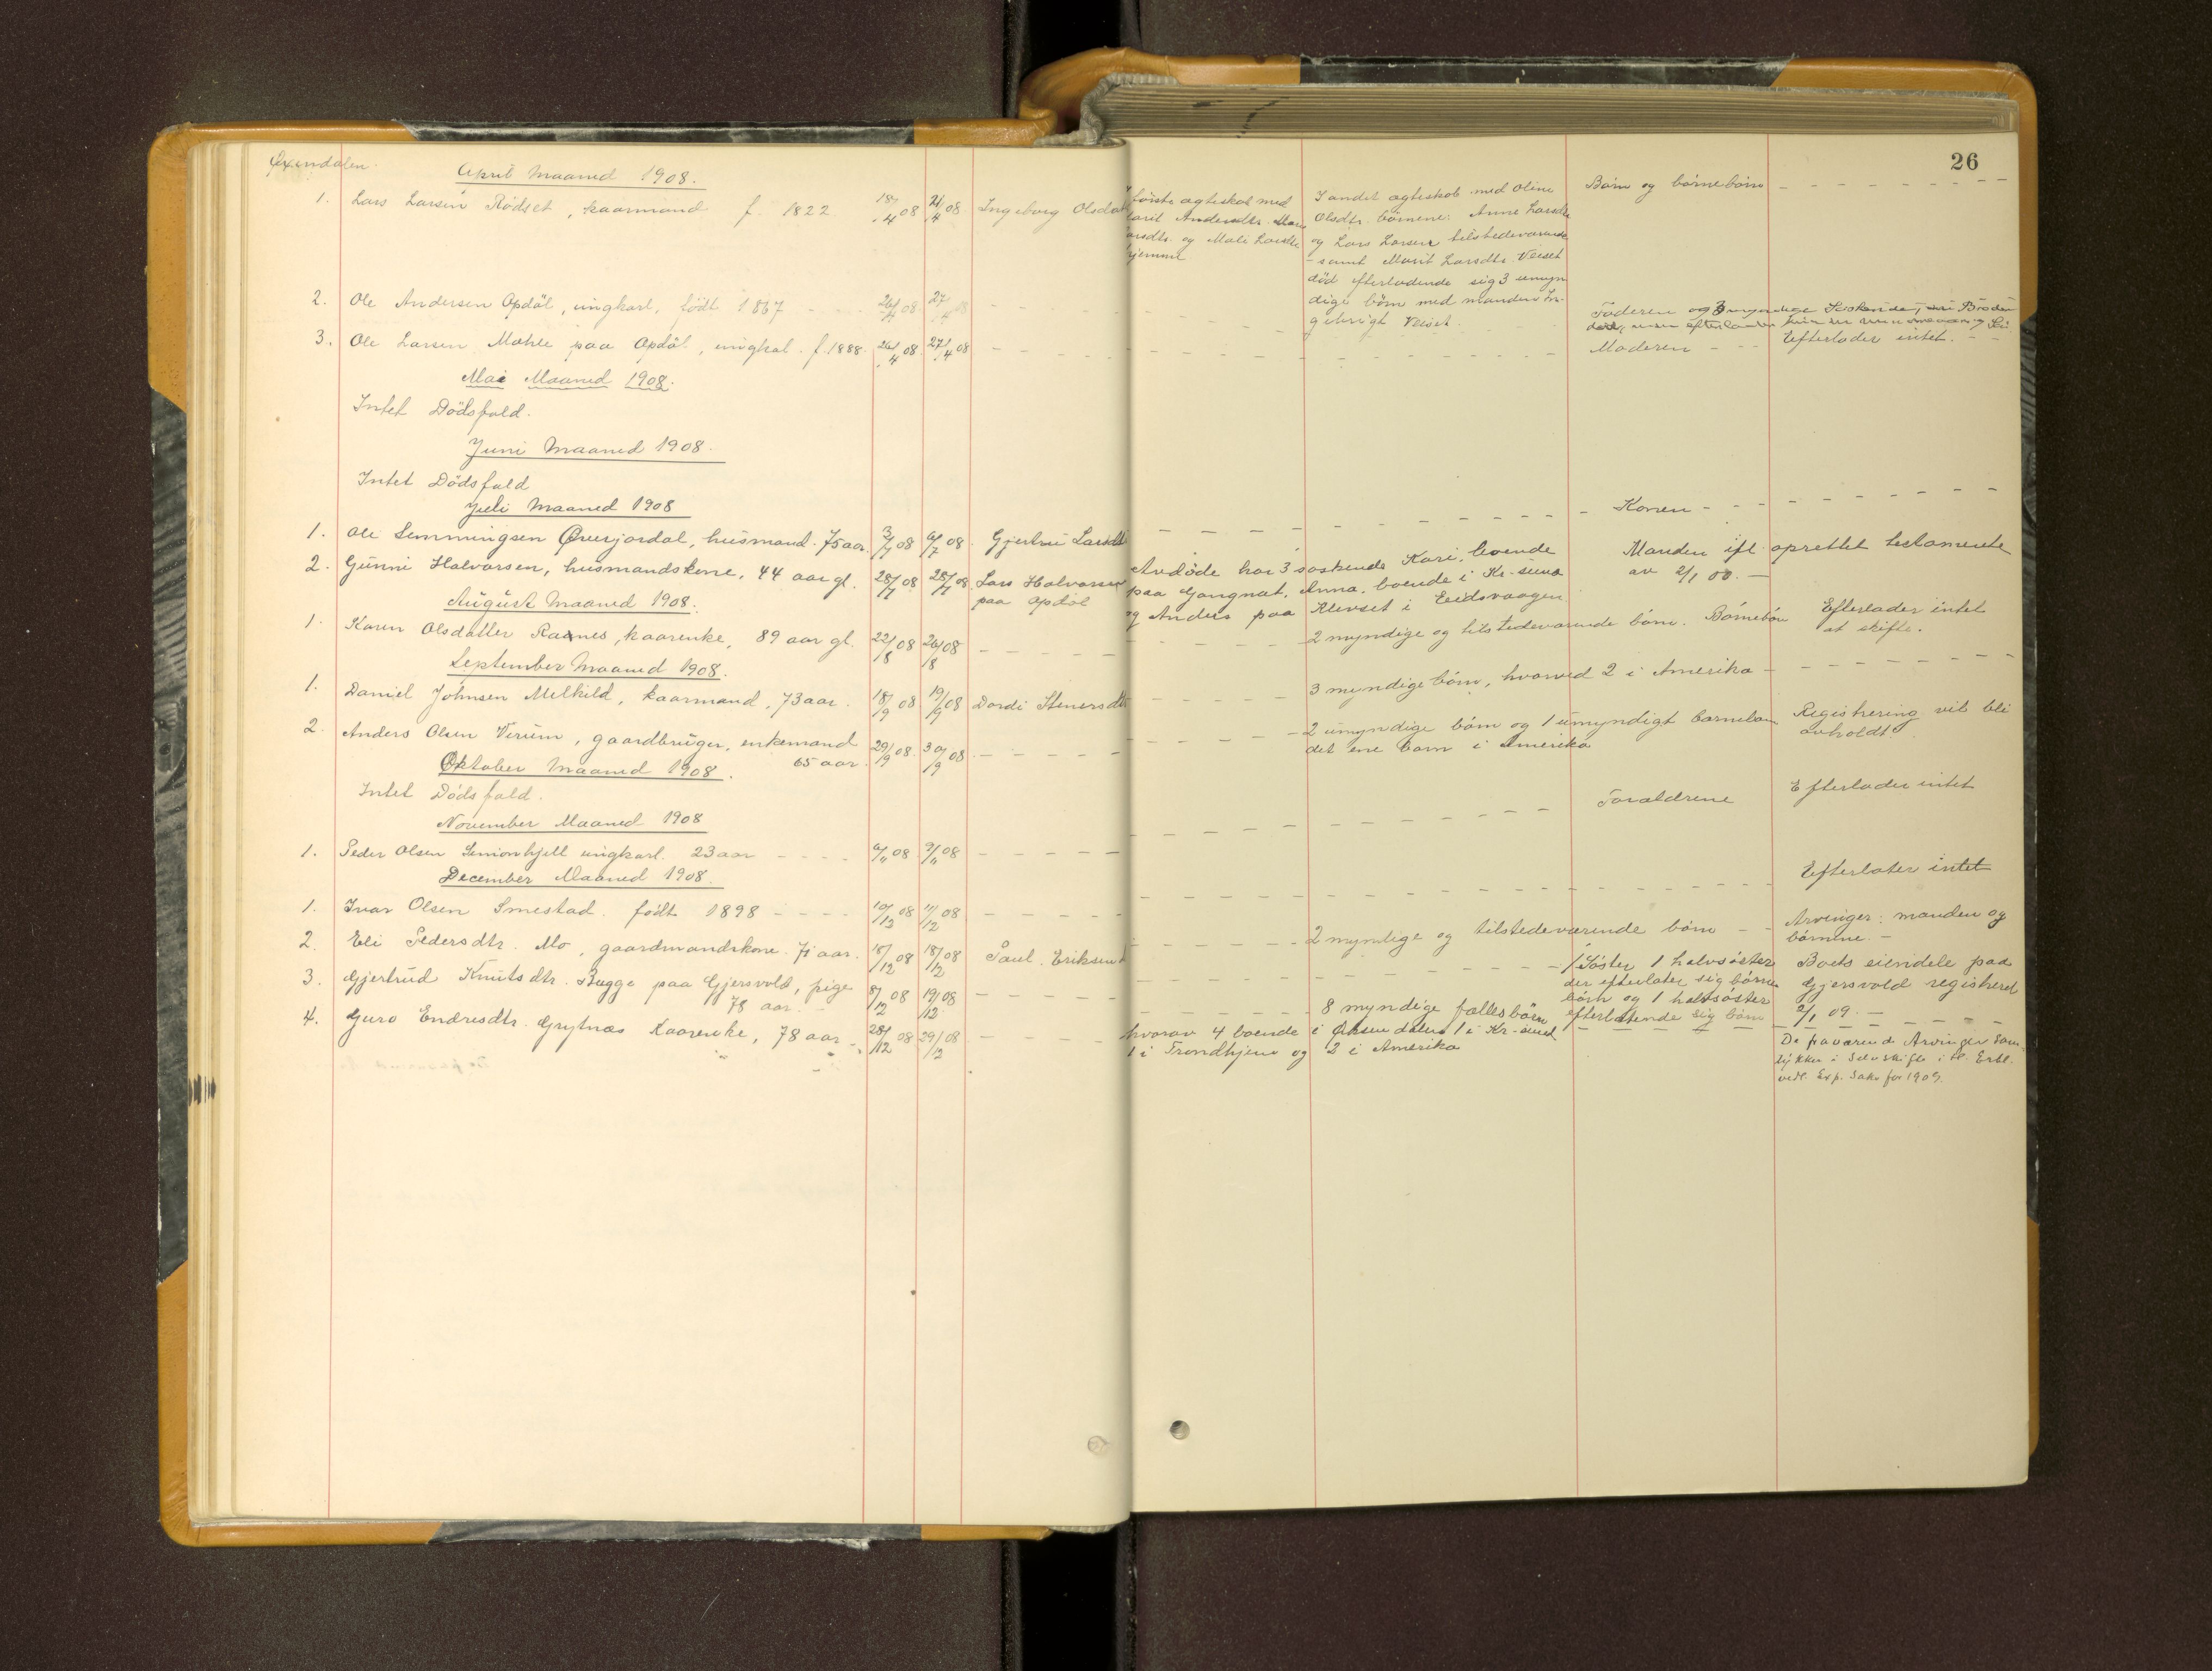 Øxendalen.
26
April Maaned 1908.
1. Lars Larsen Rödset, kaarmand f. 1822 18/4 08 21/4 08 Ingeborg Olsdat
første ægteskab med
Marit Andersdtr.
Larsdtr. og Mali Larsdtr
hjemme
I andet ægteskab med Oline
Olsdtr. børnene: Anne Larsdtr
og Lars Larsen tilstedeværende
- samt Marit Larsdtr. Veiset
död efterladende sig 3 umyn
dige børn med manden In-
gebrigt Veiset.
Børn og børnebørn
2. Ole Andersen Opdöl, ungkarl, födt 1867 26/4 08 27/4 08
Faderen og 3 myndige Söskende, Broder
3. Ole Larsen Mæhle paa Opdöl, ungkal. f. 1888. 26/4 08 27/4 08
Moderen Efterlader intet.
Mai Maaned 1908.
Intet Dödsfald.
Juni Maaned 1908.
Intet Dödsfald
Juli Maaned 1908
1. Ole Lemmingsen Överjordal, husmand. 75 aar. 3/7 08 6/7 08. Gjertrui Larsdtr
Konen
2. Gunni Halvorsen, husmandskone, 44 aar gl. 28/7 08 28/7 08 Lars Halvorsen
paa Opdöl
Avdøde har 3 søskende Kari, boende
paa Gangnat, Anna, boende i Kr-sund
og Anders paa Klevset i Eidsvaagen
Manden ifl. oprettet testamente
av 2/1 00.
August Maaned 1908.
1. Karen Olsdatter Raanes, kaarenke, 89 aar gl. 22/8 08 26/8 08
2 myndige og tilstedeværende børn. Børnebørn
Efterlader intet
at skifte.
September Maaned 1908.
1. Daniel Johnsen Melkild, kaarmand, 73 aar. 18/9 08 19/9 08 Dordi Stenersdtr
3 myndige børn, hvorved 2 i Amerika
2. Anders Olsen Verum, gaardbruger, enkemand
65 aar. 29/9 08. 30/9 08
2 umyndige børn og 1 umyndigt barnebarn
det ene barn i Amerika
Registrering vil bli
avholdt.
Oktober Maaned 1908.
Intet Dödsfald.
November Maaned 1908
1. Peder Olsen Simonhjell ungkarl. 23 aar 6/11 08 9/11 08
Forældrene
Efterlader intet
December Maaned 1908.
1. Ivar Olsen Smestad. födt 1898 10/12 08 11/12 08
Efterlater intet
2. Eli Pedersdtr. Mo, gaardmandskone. 71 aar. 15/12 08 18/12 08 Paul Eriksen
2 myndige og tilstedeværende børn
Arvinger: manden og
børnene.
3. Gjertrud Knutsdtr. Bugge paa Gjersvold, pige
78 aar. 8/12 08 19/12 08
1 Søster 1 halvsøster
der efterlater sig børne
børn og 1 halvsøster
efterlatende sig børn
Boets eiendele paa
Gjersvold registrert
2/1 09.
4. Guro Endresdtr. Grytnæs Kaarenke, 78 aar 28/12 08 29/12 08
8 myndige fællesbørn
hvorav 4 boende i Øksendalen 1 i Kr-sund
1 i Trondhjem og 2 i Amerika
De fraværende Arvinger sam-
tykker i Selvskifte i fl. Erkl.
vedl. Exp. Saker for 1909.